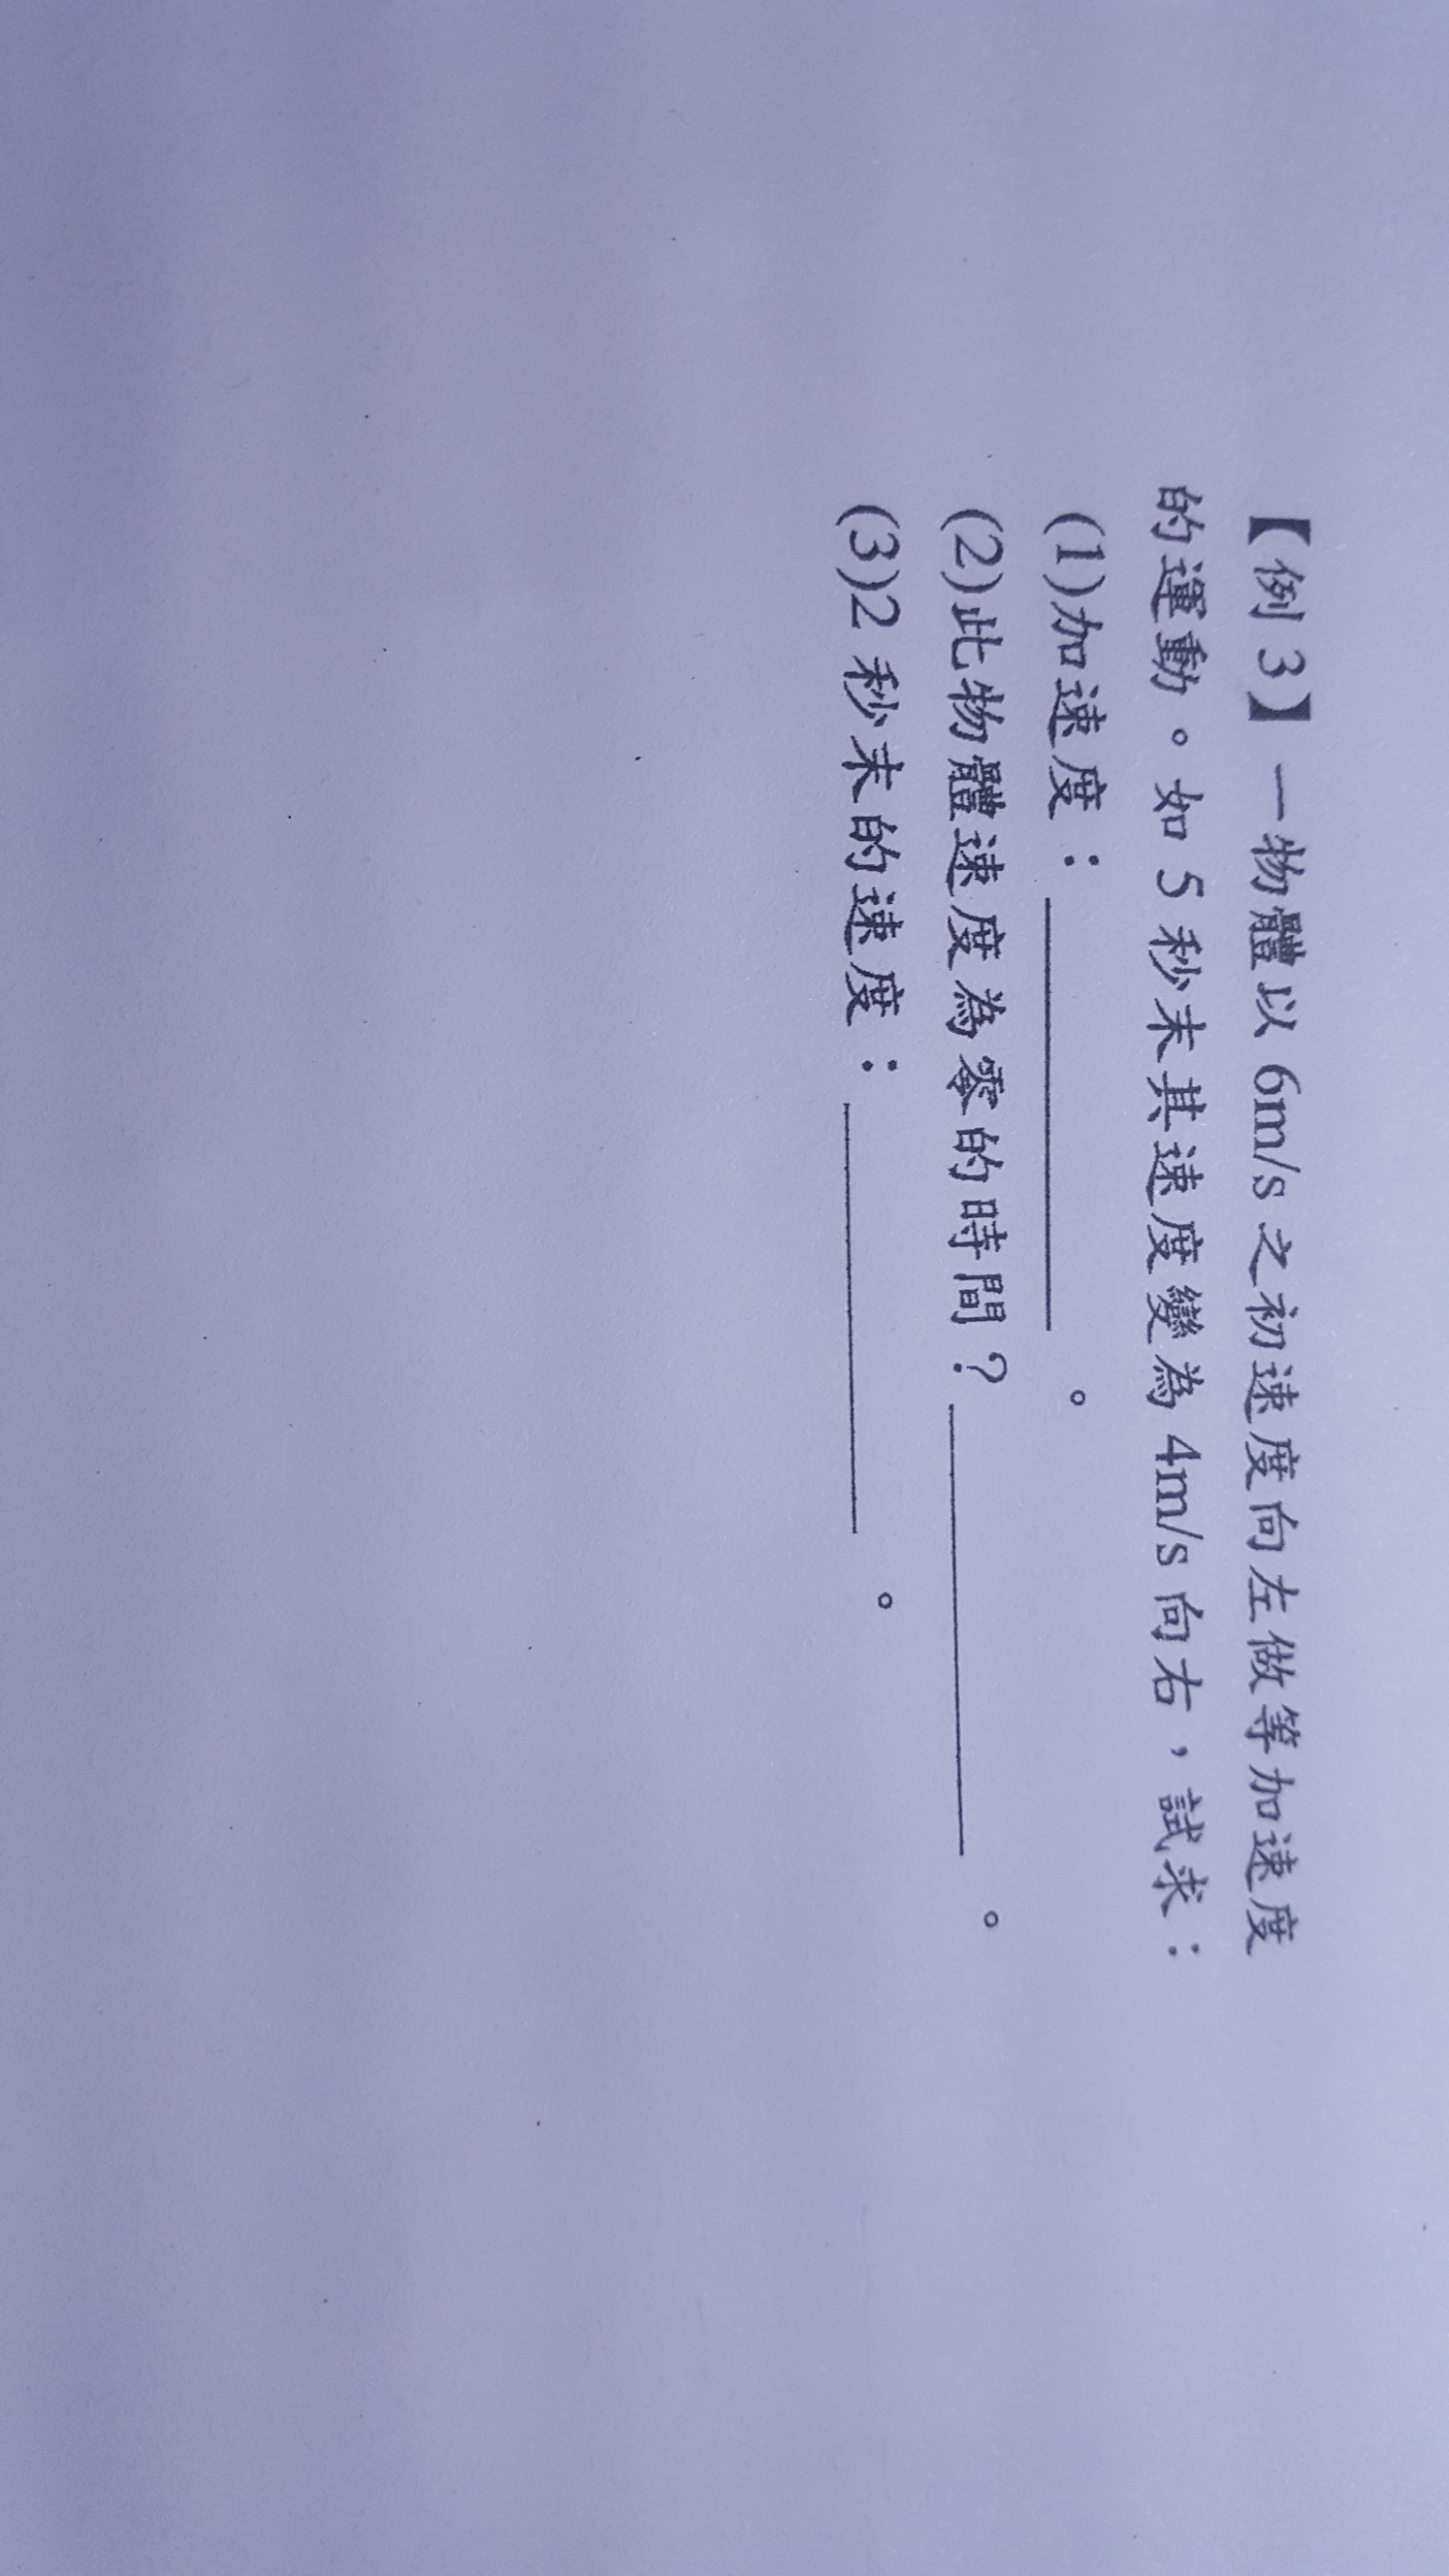 【例 3】一物體以 6m/s 之初速度向左做等加速度
的運動。如 5 秒末其速度變為 4m/s 向右，試求：
(1)加速度：＿＿＿＿＿＿。
(2)此物體速度為零的時間？＿＿＿＿＿＿。
(3)2 秒末的速度：＿＿＿＿＿＿。